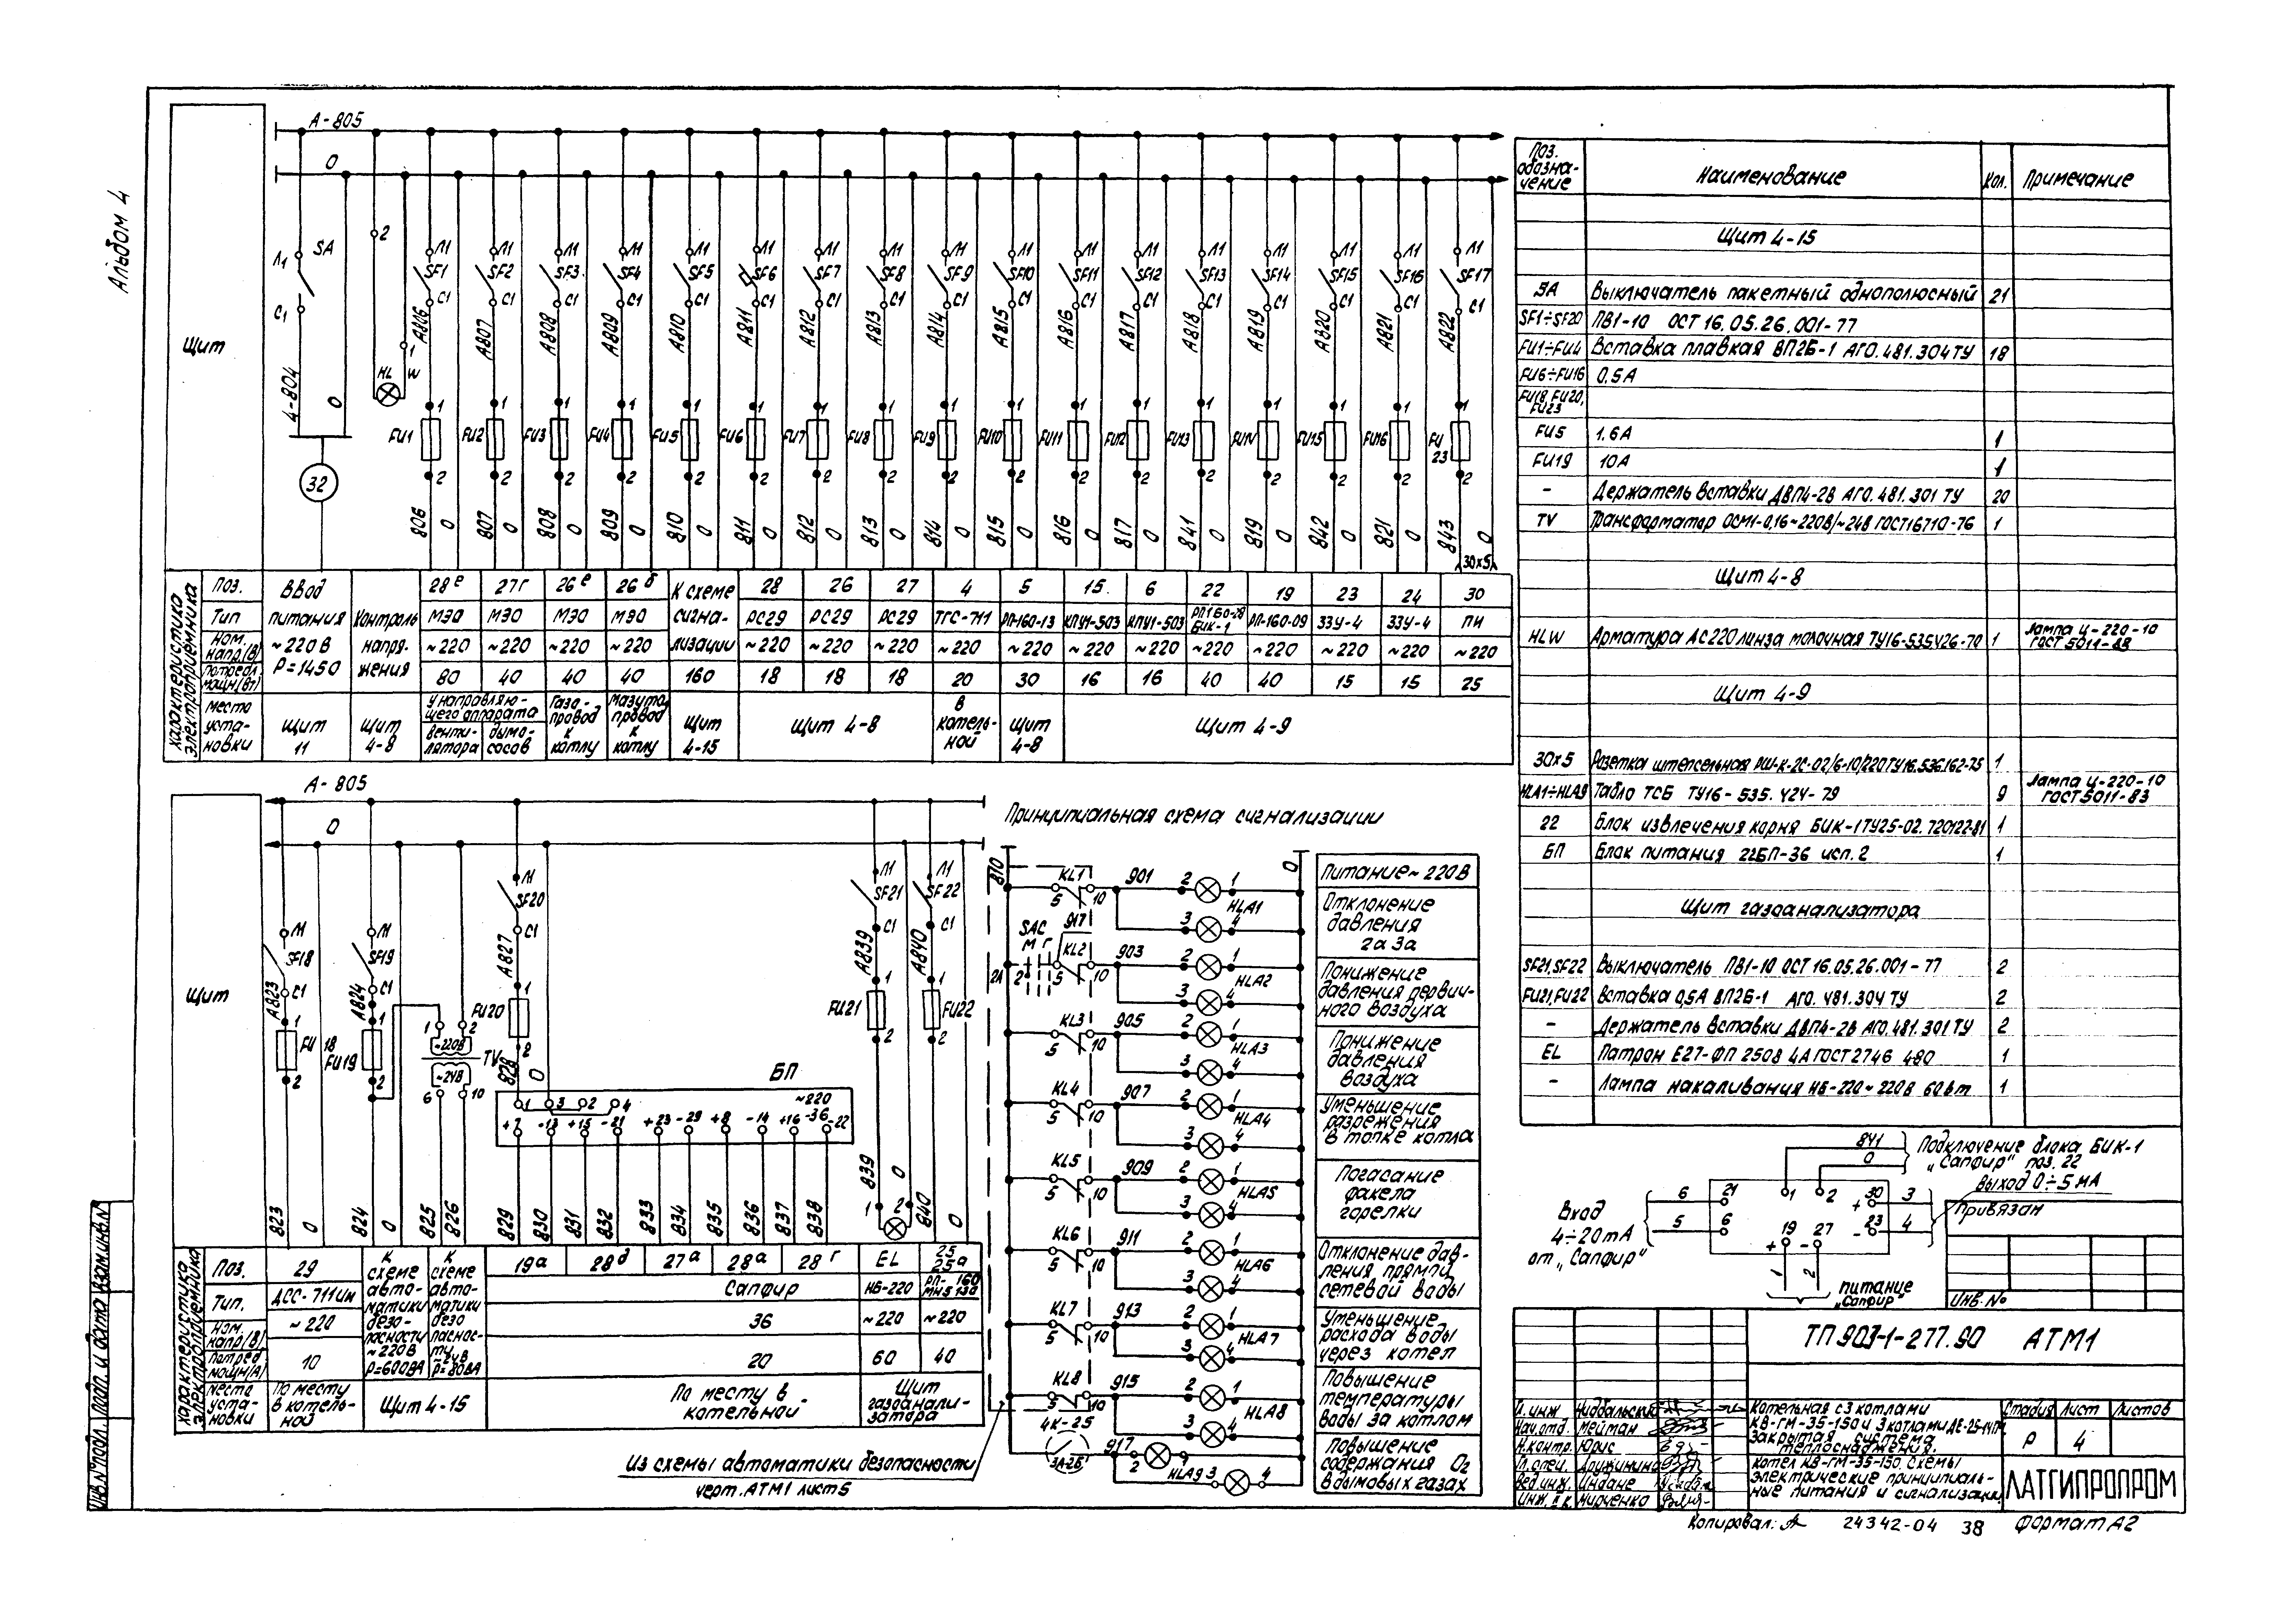 Альбом 4
А-805
0
Щит
SA
Л1
С1
4-804
0
32
2
1
HL W
Л1 Л1 Л1 Л1 Л1 Л1 Л1 Л1 Л1 Л1 Л1 Л1 Л1 Л1 Л1 Л1 Л1
SF1 SF2 SF3 SF4 SF5 SF6 SF7 SF8 SF9 SF10 SF11 SF12 SF13 SF14 SF15 SF16 SF17
С1 С1 С1 С1 С1 С1 С1 С1 С1 С1 С1 С1 С1 С1 С1 С1 С1
А806 А807 А808 А809 А810 А811 А812 А813 А814 А815 А816 А817 А818 А819 А820 А821 А822
1 1 1 1 1 1 1 1 1 1 1 1 1 1 1 1 1
FU1 FU2 FU3 FU4 FU5 FU6 FU7 FU8 FU9 FU10 FU11 FU12 FU13 FU14 FU15 FU16 FU 23
2 2 2 2 2 2 2 2 2 2 2 2 2 2 2 2 2
806 0 807 0 808 0 809 0 810 0 811 0 812 0 813 0 814 0 815 0 816 0 817 0 841 0 819 0 842 0 821 0 843 0
30х5
характеристика электроприемника
Поз. Ввод 28е 27г 26е 26б К схеме 28 26 27 4 5 15. 6 22 19 23 24 30
Тип питания Контроль МЭО МЭО МЭО МЭО сигна- РС29 РС29 РС29 ТГС-711 РП-160-13 КПУ1-503 КПУ1-503 РП160-28 БИК-1 РП-160-09 ЗЗУ-4 ЗЗУ-4 ПИ
Ном. напр.(В) ~220В напря- ~220 ~220 ~220 ~220 лизации ~220 ~220 ~220 ~220 ~220 ~220 ~220 ~220 ~220 ~220 ~220 ~220
Потребл. мощн(Вт) Р=1450 жения 80 40 40 40 160 18 18 18 20 30 16 16 40 40 15 15 25
Место уста- новки
Щит 11
Щит 4-8
У направляю- щего аппарата
венти- лятора
дымо- сосов
Газо- провод к котлу
Мазуто провод к котлу
Щит 4-15
Щит 4-8
В котель- ной
Щит 4-8
Щит 4-9
А-805
0
Щит
Л1 SF18 С1 А823 1 FU 18 2
Л1 SF19 С1 А824 1 FU19 2
1 2
~220В
TV
~24В
6 10
Л1 SF20 С1 А827 1 FU20 2 828 0
БП
1 3 2 4 ~220
+7 -13 +15 -21 +23 -29 +8 -14 +16 -36 -22
Л1 SF21 С1 А839 1 FU21 2 839 0
1 2
Л1 SF22 С1 А840 1 FU22 2 840 0
823 0 824 0 825 826 829 830 831 832 833 834 835 836 837 838
характеристика электроприемника
Поз. 29 19а 28д 27а 28а 28г EL 25 25а
К схеме авто- матики безо- пасности ~220В Р=600ВА
К схеме авто- матики безо пасност- ти ~24В Р=80ВА
Тип. ДСС-711ин Сапфир НБ-220 РП-160
Ном. напр(В) ~220 36 ~220 ~220
Потребл мощн(А) 10 20 60 40
Место уста- новки
По месту в котель- ной
Щит 4-15
По месту в котельной
Щит газоанали- затора
Из схемы автоматики безопасности
черт. АТМ1 лист 5
Принципиальная схема сигнализации
810
0
KL1 5 10 901 2 1 HLA1 3 4
SAC М Г 917 2А 2
KL2 5 10 903 2 1 HLA2 3 4
KL3 5 10 905 2 1 HLA3 3 4
KL4 5 10 907 2 1 HLA4 3 4
KL5 5 10 909 2 1 HLA5 3 4
KL6 5 10 911 2 1 HLA6 3 4
KL7 5 10 913 2 1 HLA7 3 4
KL8 5 10 915 2 1 HLA8 3 4
4К-25 917 2 HLA9 3 4
Питание~220В
Отклонение
давления
газа
Понижение
давления первич-
ного воздуха
Понижение
давления
воздуха
Уменьшение
разрежения
в топке котла
Погасание
факела
горелки
Отклонение дав-
ления прямой
сетевой воды
Уменьшение
расхода воды
через котел
Повышение
температуры
воды за котлом
Повышение
содержания О2
в дымовых газах
Поз. обозна- чение Наименование Кол. Примечание
Щит 4-15
SA Выключатель пакетный однополюсный 21
SF1÷SF20 ПВ1-10 ОСТ 16.05.26.001-77
FU1÷FU4 Вставка плавкая ВП2Б-1 АГО.481.304ТУ 18
FU6÷FU16 0,5А
FU18, FU20, FU23
FU5 1,6А 1
FU19 10А 1
- Держатель вставки ДВП4-2В АГО.481.301 ТУ 20
TV Трансформатор ОСМ1-0,16~220В/~24В ГОСТ16710-76 1
Щит 4-8
HLW Арматура АС220 линза молочная ТУ16-535.426-70 1 Лампа Ц-220-10 ГОСТ 5011-83
Щит 4-9
30х5 Розетка штепсельная РШ-К-2С-02/6-10/220ТУ16.536.162-75 1
HLA1÷HLA9 Табло ТСБ ТУ16-535.424-79 9 Лампа Ц-220-10 ГОСТ 5011-83
22 Блок извлечения корня БИК-1 ТУ25-02.720122-81 1
БП Блок питания 22БП-36 исп.2 1
Щит газоанализатора
SF21,SF22 Выключатель ПВ1-10 ОСТ 16.05.26.001-77 2
FU21,FU22 Вставка 0,5А ВП2Б-1 АГО.481.304 ТУ 2
- Держатель вставки ДВП4-2В АГО.481.301 ТУ 2
EL Патрон Е27-ФП 2508 4А ГОСТ2746 4-80 1
- Лампа накаливания НБ-220~220В 60вт 1
841
0
Подключение блока БИК-1
„Сапфир" поз. 22
Вход
4÷20mA
от „Сапфир"
6 21 1 2 + 30 3
5 6 19 27 - 23 4
+ -
1 2
выход 0÷5 МА
питание
„Сапфир"
Привязан
Инв.№
ТП 903-1-277.90 АТМ1
Нач.отд. Мейман
Н.контр. Юрис
Гл.спец. Дружинина
Вед.инж. Индане
Котельная с 3 котлами
КВ-ГМ-35-150 и 3 котлами ДЕ-25-14ГМ.
Закрытая система
теплоснабжения.
Котел КВ-ГМ-35-150. Схемы
электрические принципиаль-
ные питания и сигнализации.
Стадия Лист Листов
Р 4
ЛАТГИПРОПРОМ
Копировал:
24342-04 38 Формат А2
Инв.№подл. Подп. и дата Взам.инв.№